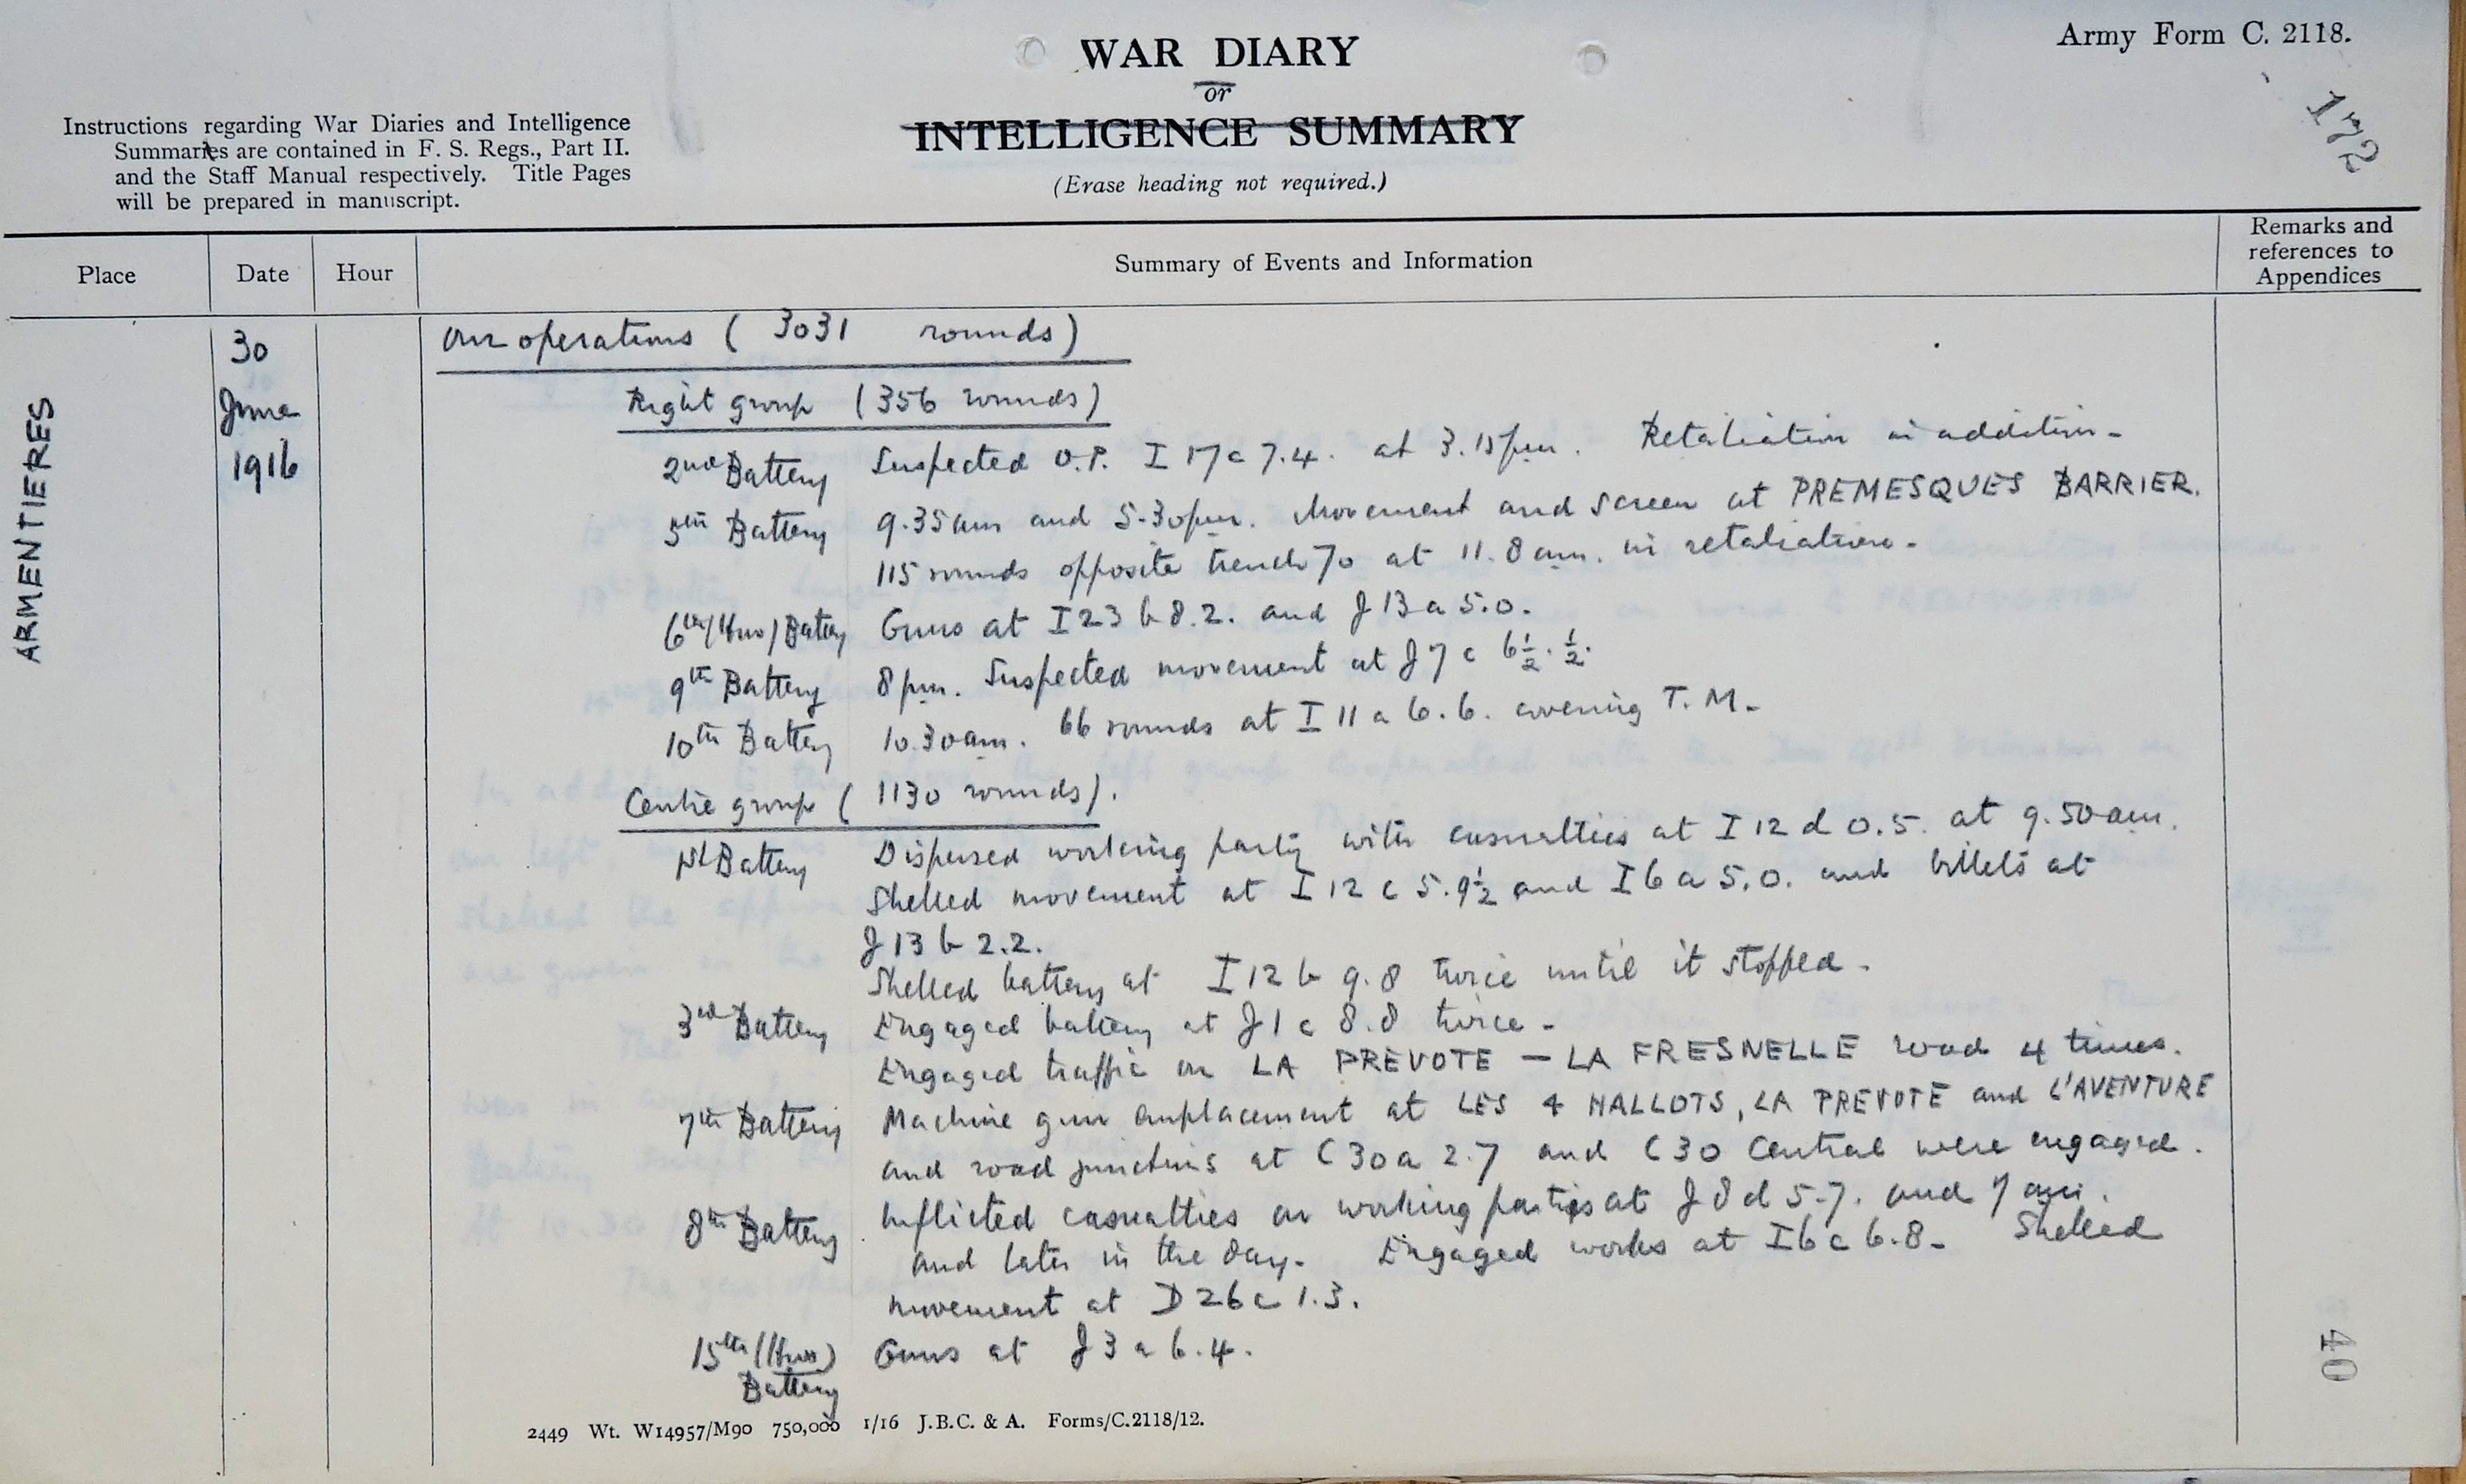 Army Form C. 2118.
WAR DIARY
or
INTELLIGENCE SUMMARY
(Erase heading not required.)
172
Instructions regarding War Diaries and Intelligence
Summaries are contained in F. S. Regs., Part II.
and the Staff Manual respectively. Title Pages
will be prepared in manuscript.
Place Date Hour Summary of Events and Information Remarks and references to Appendices
ARMENTIERES
30
June
1916
Our operations ( 3031 rounds)
Right group (356 rounds)
2nd Battery Suspected O.P. I 17 c 7.4. at 3.15pm. Retaliation in addition.
5th Battery 9.35am and 5.30pm. Movement and screen at PREMESQUES BARRIER.
115 rounds opposite trench 70 at 11.8am. in retaliation.
6th (How) Battery Guns at I 23 b 8.2. and J 13 a 5.0.
9th Battery 8pm. Suspected movement at J 7 c 6½.½.
10th Battery 10.30am. 66 rounds at I 11 a 6.6. covering T.M.
Centre group ( 1130 rounds).
1st Battery Dispersed working party with casualties at I 12 d 0.5. at 9.50am.
Shelled movement at I 12 c 5.9½ and I 6 a 5.0. and billets at
J 13 b 2.2.
Shelled battery at I 12 b 9.8 twice until it stopped.
3rd Battery Engaged battery at J 1 c 8.8 twice.
Engaged traffic on LA PREVOTE — LA FRESNELLE road 4 times.
7th Battery Machine gun emplacement at LES 4 HALLOTS, LA PREVOTE and L'AVENTURE
and road junctions at C 30 a 2.7 and C 30 Central were engaged.
8th Battery Inflicted casualties on working parties at J 8 d 5.7. and 7 am.
and later in the day. Engaged works at I 6 c 6.8. Shelled
movement at D 26 c 1.3.
15th (How) Battery Guns at J 3 a 6.4.
40
2449 Wt. W14957/M90 750,000 1/16 J.B.C. & A. Forms/C.2118/12.